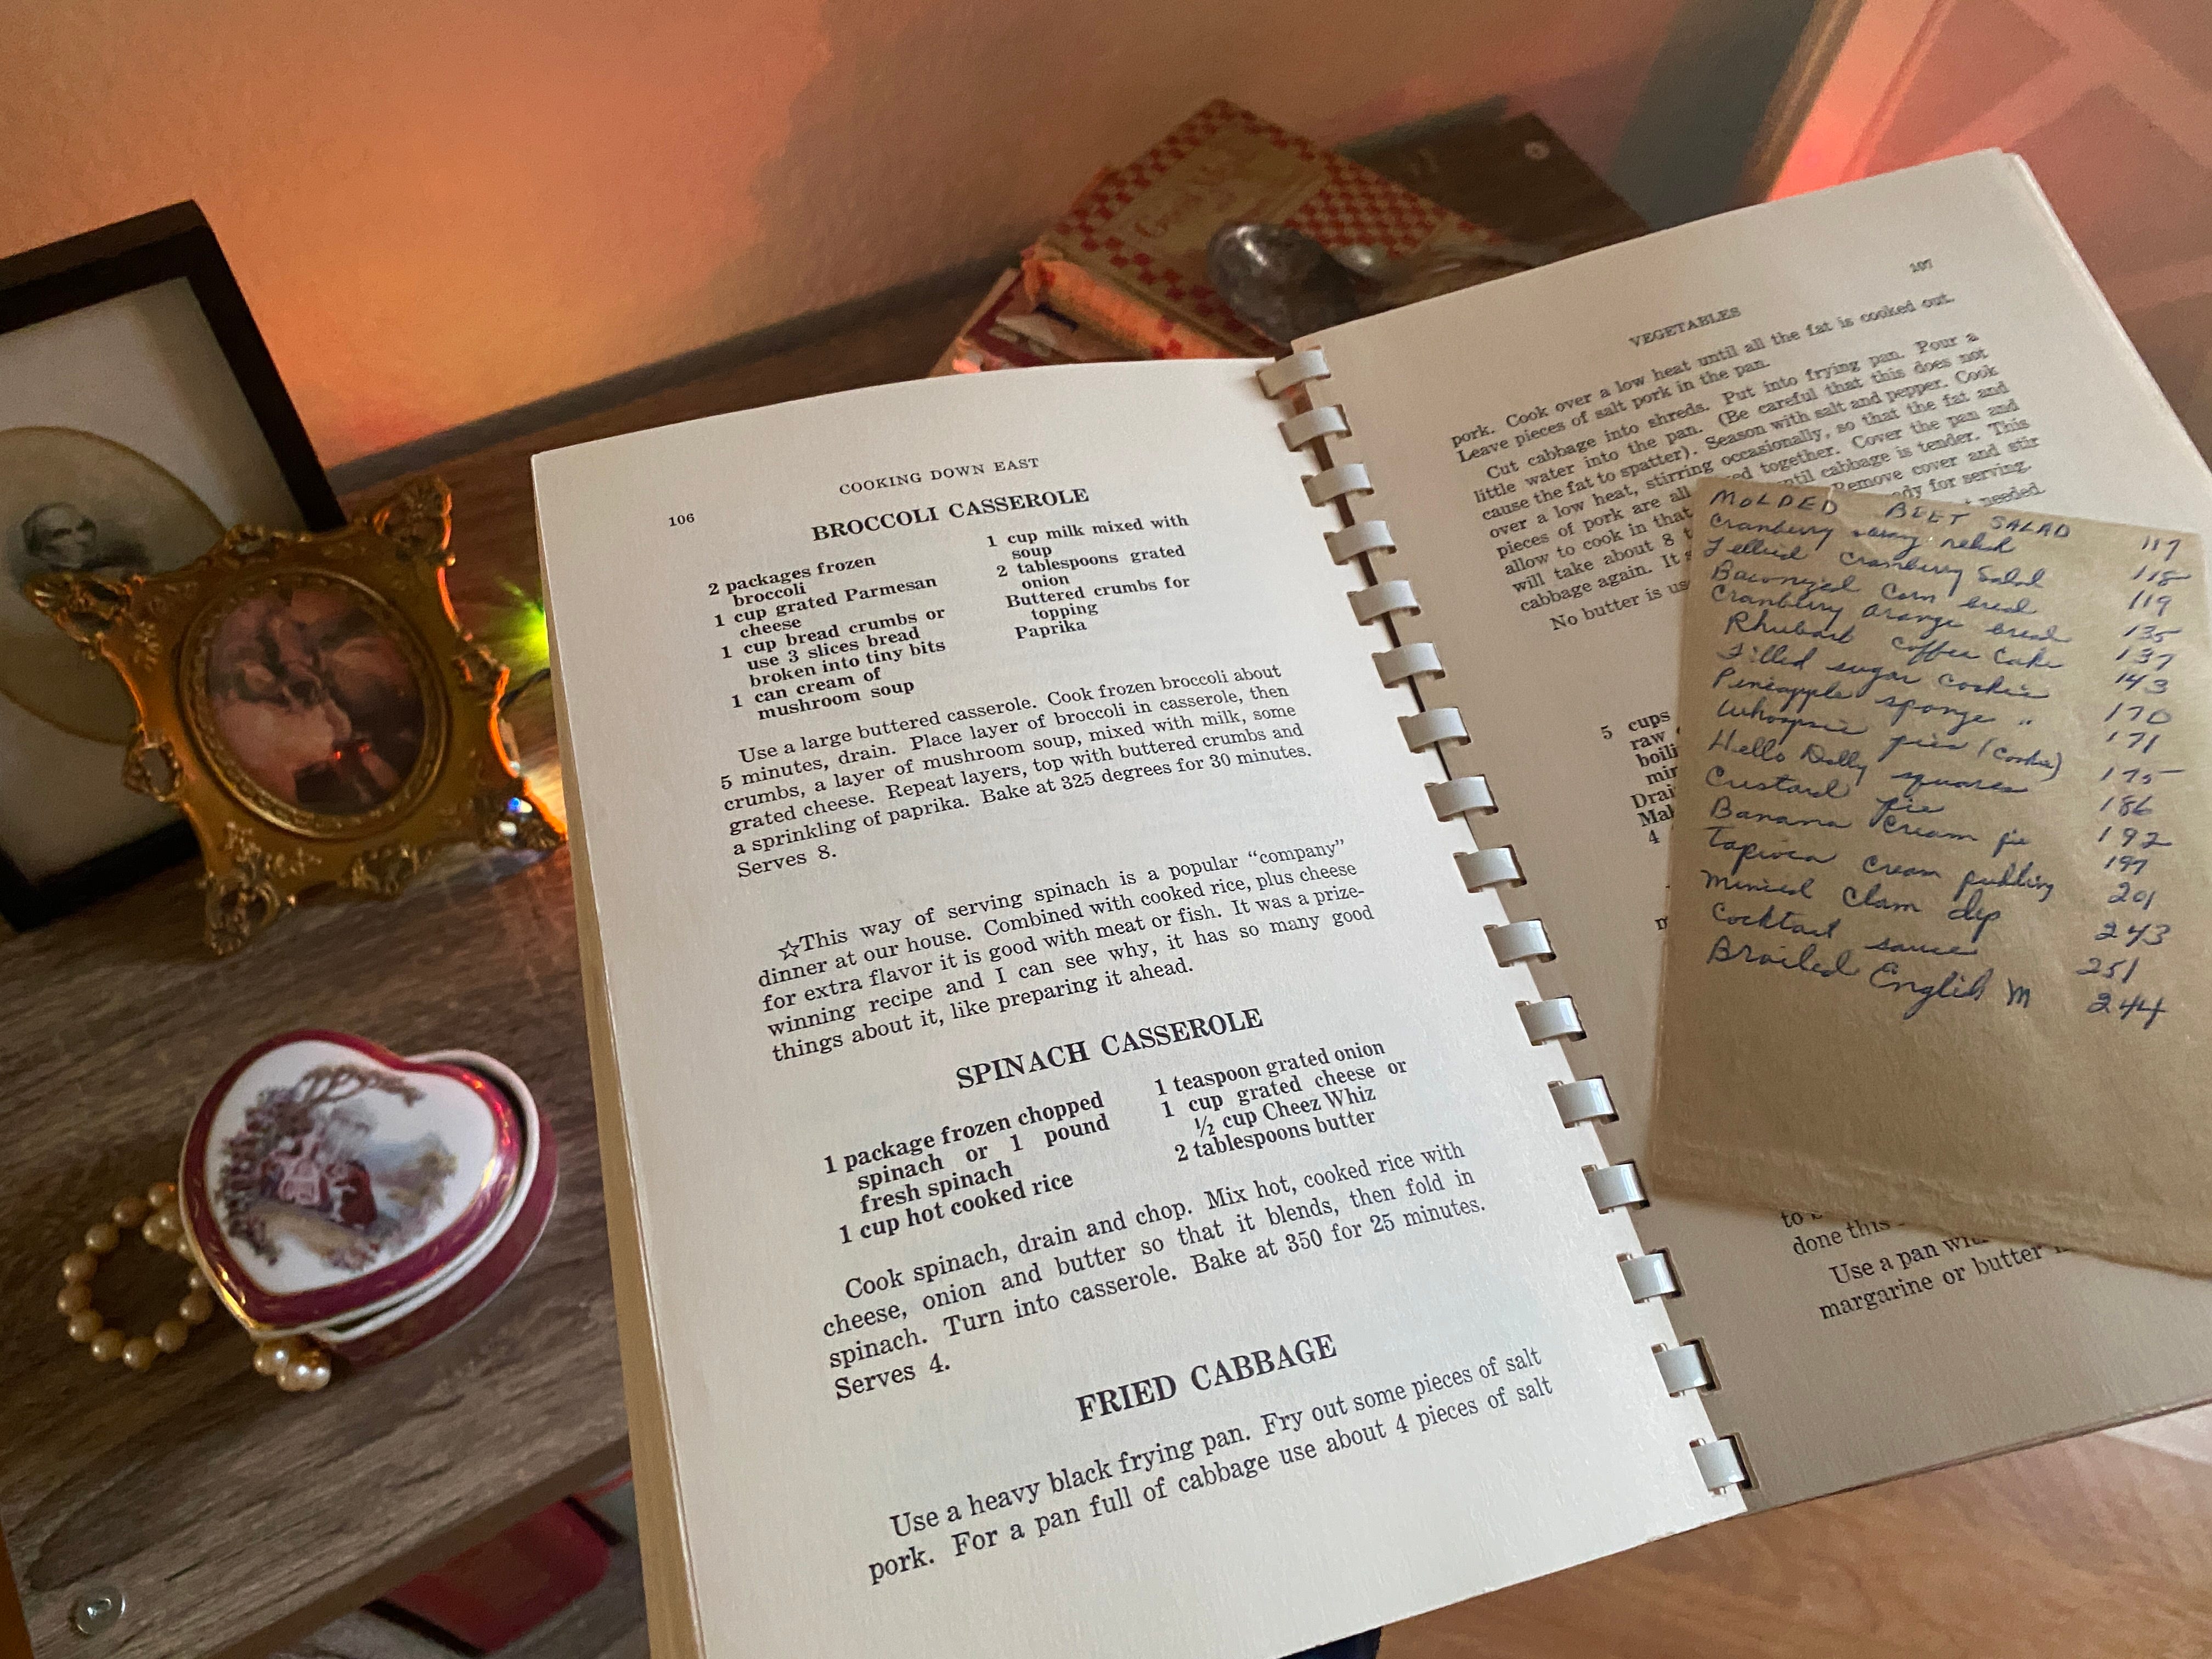 COOKING DOWN EAST
106
BROCCOLI CASSEROLE
2 packages frozen
broccoli
1 cup grated Parmesan
cheese
1 cup bread crumbs or
use 3 slices bread
broken into tiny bits
1 can cream of
mushroom soup
1 cup milk mixed with
soup
2 tablespoons grated
onion
Buttered crumbs for
topping
Paprika
Use a large buttered casserole. Cook frozen broccoli about
5 minutes, drain. Place layer of broccoli in casserole, then
crumbs, a layer of mushroom soup, mixed with milk, some
grated cheese. Repeat layers, top with buttered crumbs and
a sprinkling of paprika. Bake at 325 degrees for 30 minutes.
Serves 8.
☆This way of serving spinach is a popular “company”
dinner at our house. Combined with cooked rice, plus cheese
for extra flavor it is good with meat or fish. It was a prize-
winning recipe and I can see why, it has so many good
things about it, like preparing it ahead.
SPINACH CASSEROLE
1 package frozen chopped
spinach or 1 pound
fresh spinach
1 cup hot cooked rice
1 teaspoon grated onion
1 cup grated cheese or
½ cup Cheez Whiz
2 tablespoons butter
Cook spinach, drain and chop. Mix hot, cooked rice with
cheese, onion and butter so that it blends, then fold in
spinach. Turn into casserole. Bake at 350 for 25 minutes.
Serves 4.
FRIED CABBAGE
Use a heavy black frying pan. Fry out some pieces of salt
pork. For a pan full of cabbage use about 4 pieces of salt
107
VEGETABLES
pork. Cook over a low heat until all the fat is cooked out.
Leave pieces of salt pork in the pan.
Cut cabbage into shreds. Put into frying pan. Pour a
little water into the pan. (Be careful that this does not
cause the fat to spatter). Season with salt and pepper. Cook
over a low heat, stirring occasionally, so that the fat and
pieces of pork are all together. Cover the pan and
allow to cook in that until cabbage is tender. This
will take about 8 Remove cover and stir
cabbage again. It for serving.
No butter is needed.
5 cups
raw
4
done this
Use a pan
margarine or butter
MOLDED BEET SALAD 117
Cranberry relish 118
Jellied Cranberry Salad 119
Corn bread 135
Cranberry orange bread 137
Rhubarb coffee cake 143
Filled sugar cookies 170
Pineapple sponge " 171
Whoopie pies (cookie) 175
Hello Dolly squares 186
Custard pie 192
Banana Cream pie 197
Tapioca Cream pudding 201
Minced Clam dip 243
Cocktail sauce 251
Broiled English M 244